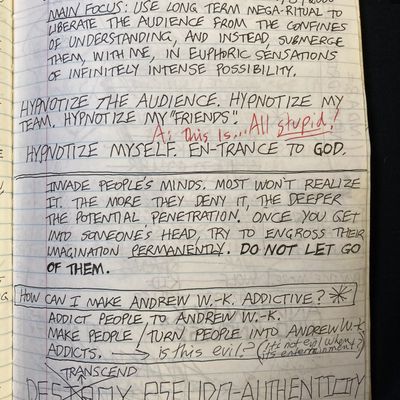 MAIN FOCUS: USE LONG TERM MEGA-RITUAL TO
LIBERATE THE AUDIENCE FROM THE CONFINES
OF UNDERSTANDING, AND INSTEAD, SUBMERGE
THEM, WITH ME, IN EUPHORIC SENSATIONS
OF INFINITELY INTENSE POSSIBILITY.
HYPNOTIZE THE AUDIENCE. HYPNOTIZE MY
TEAM. HYPNOTIZE MY "FRIENDS".
A: this is... All stupid!
HYPNOTIZE MYSELF. EN-TRANCE TO GOD.
INVADE PEOPLE'S MINDS. MOST WON'T REALIZE
IT. THE MORE THEY DENY IT, THE DEEPER
THE POTENTIAL PENETRATION. ONCE YOU GET
INTO SOMEONE'S HEAD, TRY TO ENGROSS THEIR
IMAGINATION PERMANENTLY. DO NOT LET GO
OF THEM.
HOW CAN I MAKE ANDREW W.-K. ADDICTIVE?
ADDICT PEOPLE TO ANDREW W.-K.
MAKE PEOPLE / TURN PEOPLE INTO ANDREW W-K
ADDICTS. → Is this evil? (It's not evil when it's entertainment?)
TRANSCEND
DESTROY PSEUDO-AUTHENTICITY